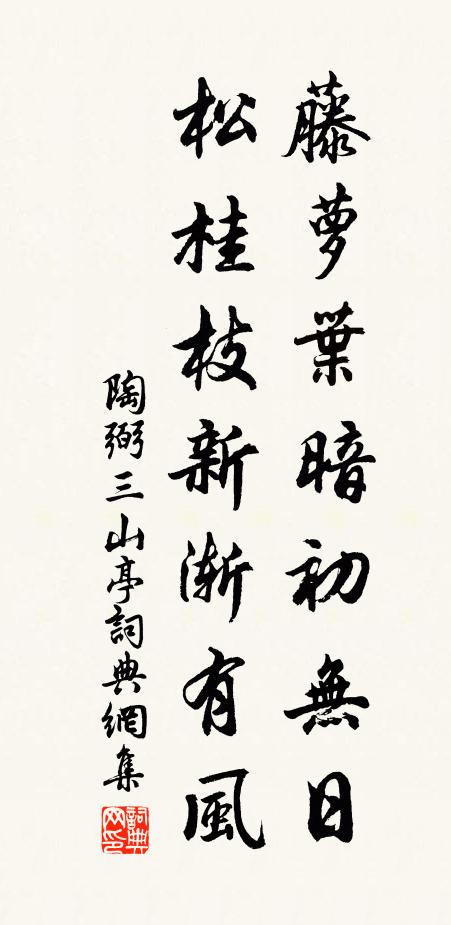 藤萝葉暗初無日
松桂枝新渐有風
陶弼三山亭詞典網集
詞典网印